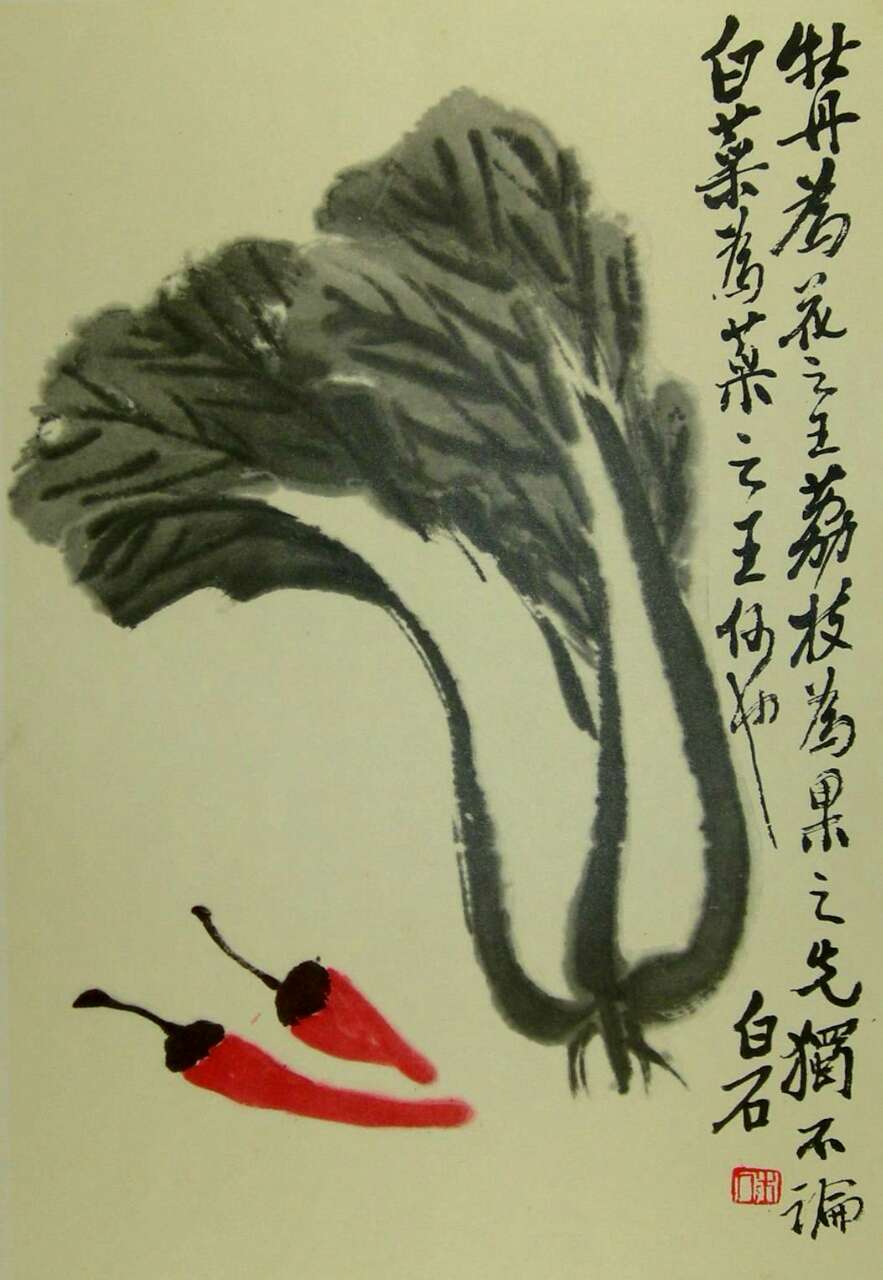 牡丹為花之王荔枝為果之先獨不論
白菜為菜之王何也
白石
木人